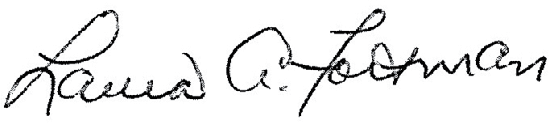 Laura A. Foltman